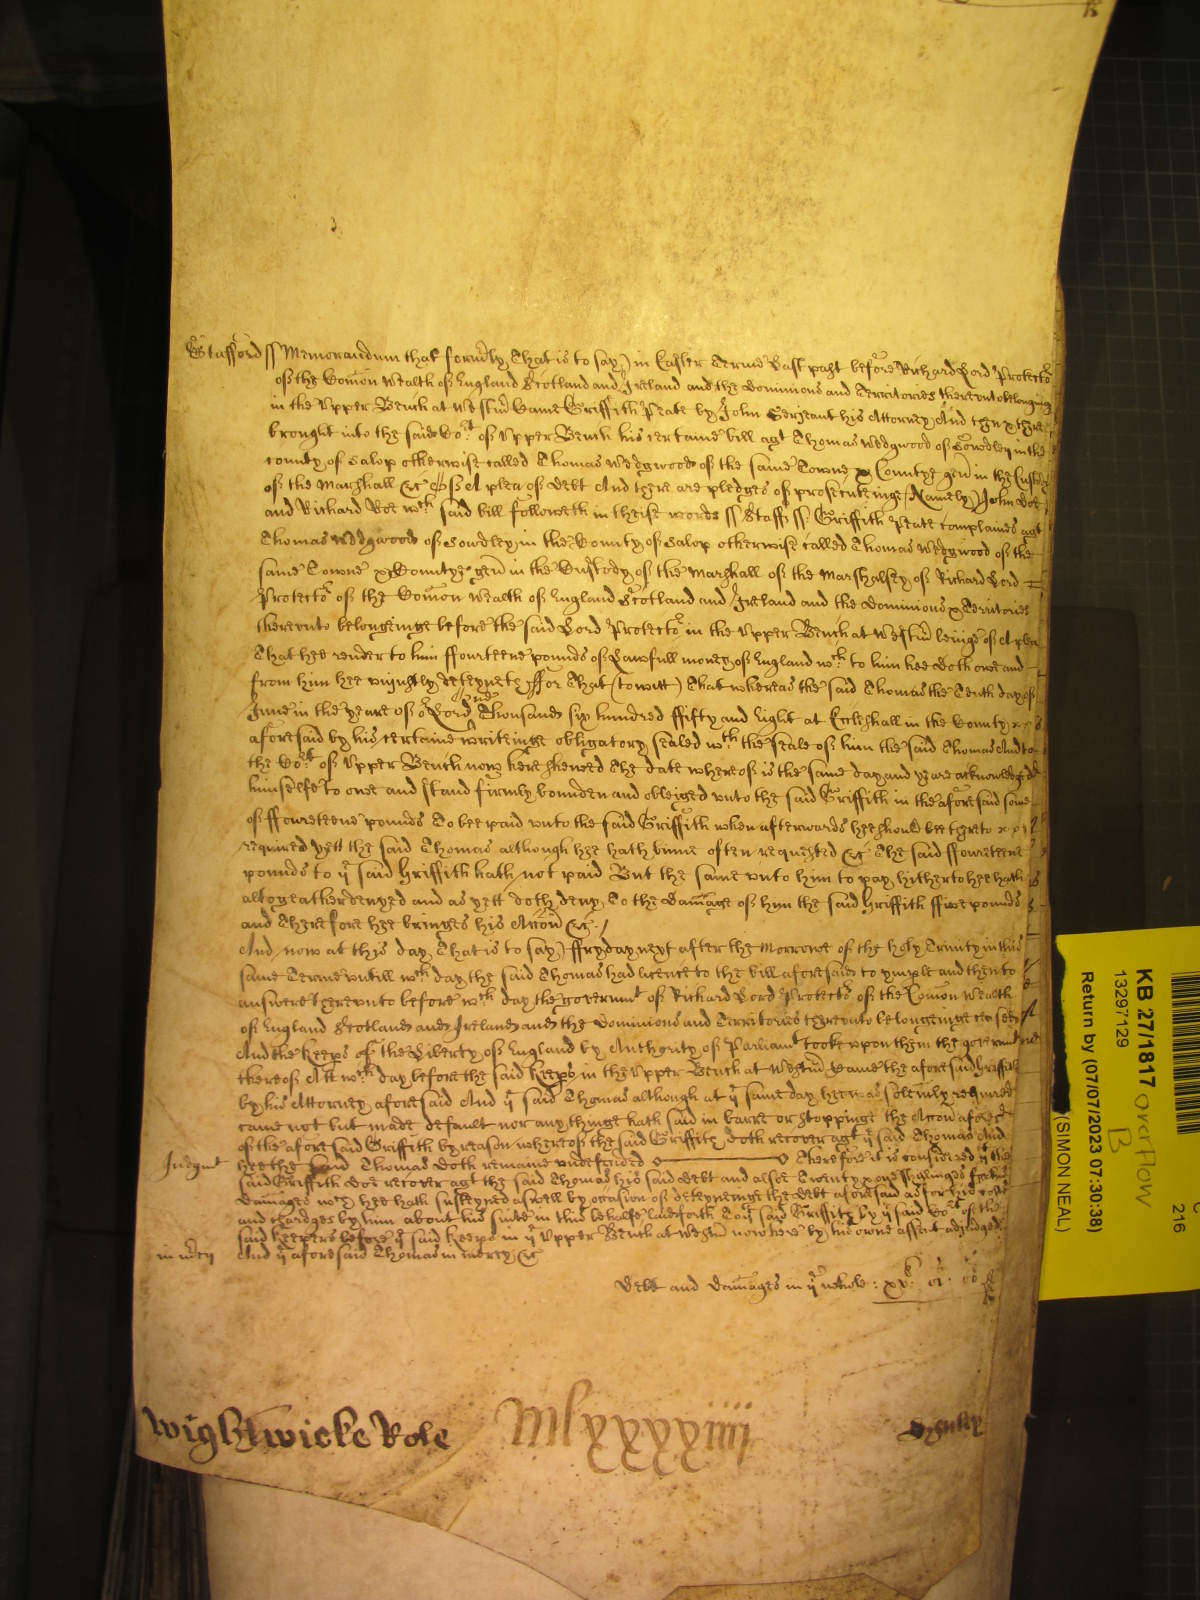 Stafford ss Memorandum that formrly That is to say) in Easter Terme Last past before Richard Lord Protector
of the Comon Wealth of England Scotland and Ireland and the Dominions and Territories thereunto belonging
in the Upper Bench at Westmr Came Griffith Peate by John Serjeant his Attorney And then & there
brought into the said Cort of Upper Bench his certaine bill agt Thomas Wedgwood of Sowdley in the
county of Salop otherwise called Thomas Wedgwood of the same Towne & Countye gen in the Custody
of the Marshall &c of A plea of Debt And there are pledges of prosecuteinge (Namely) John Doe
and Richard Roe wch said bill followeth in theise words ss Staff ss Griffith Peate complaines agt
Thomas Wedgwood of Sowdley in the County of Salop otherwise called Thomas Wedgwood of the
same Towne & Countye gen in the Custody of the Marshall of the Marshalsey of Richard Lord
Protector of the Comon Wealth of England Scotland and Ireland and the Dominions & Territories
thereunto belongeinge before the said Lord Protector in the Upper Bench at Westmr beinge of A plea
That hee render to him ffourteene pounds of Lawfull money of England wch to him hee doth owe and
from him hee unjustly deteyneth ffor That (to witt) That whereas the said Thomas the Tenth day of
June in the yeare of or Lord one Thousand six hundred ffifty and Eight at Eccleshall in the County
aforesaid by his certaine writeinge obligatory sealed wth the seale of him the said Thomas And to
the Cort of Upper Bench now here shewed The date whereof is the same day and yeare acknowledged
himselfe to owe and stand firmly bounden and obleiged unto the said Griffith in the aforesaid some
of ffoureteene pounds To bee paid unto the said Griffith when afterwards hee should bee thereto
required yett the said Thomas although hee hath binne often requested &c The said ffoureteene
pounds to ye said Griffith hath not paid But the same unto him to pay hitherto hee hath
altogeather denyed and as yett doth deny To the damage of him the said Griffith ffive pounds
and Therefore hee bringes his Accon &c
And now at this day That is to say) ffryday next after the Morrowe of the holy Trinity in this
same Terme untill wch day the said Thomas had licence to the bill aforesaid to imple and then to
answere thereunto before wch day the govermt of Richard Lord Protector of the Comon Wealth
of England Scotland and Ireland and the Dominions and Territories thereunto belongeinge ceased
And the Keeps of the Liberty of England by Authority of Parliamt tooke upon them the govermt
thereof Att wch day before the said Keeps in the Upper Bench at Westmr Came the aforesaid Griffith
by his Attorney aforesaid And ye said Thomas although at ye same day hee was solemly required
came not but made default nor any thinge hath said in barre or stoppinge the Accon aforesd
of the aforesaid Griffith by reason whereof the said Griffith doth recover agt ye said Thomas And
Judgmt hee the said Thomas doth remaine undefended Therefore it is considered yt the
said Griffith doe recover agt the said Thomas his said debt and alsoe Twenty & one shillings for his
Damages wch hee hath susteyned aswell by occasion of deteyneinge the debt aforesaid as for his costs
and chardges by him about his suite in this behalfe laid forth To ye said Griffith by ye said Cort of the
said keepers before ye said Keeps in ye Upper Bench at Westmr now here by his owne assent adjudged
in mcy And ye aforesaid Thomas in mercy &c
Debt and Damages in ye whole: xvli 01s 00d
Wightwicke Role Mlxxxxiiii
KB 27/1817 overflow
13297129 B
Return by (07/07/2023 07:30:38)
(SIMON NEAL)
216